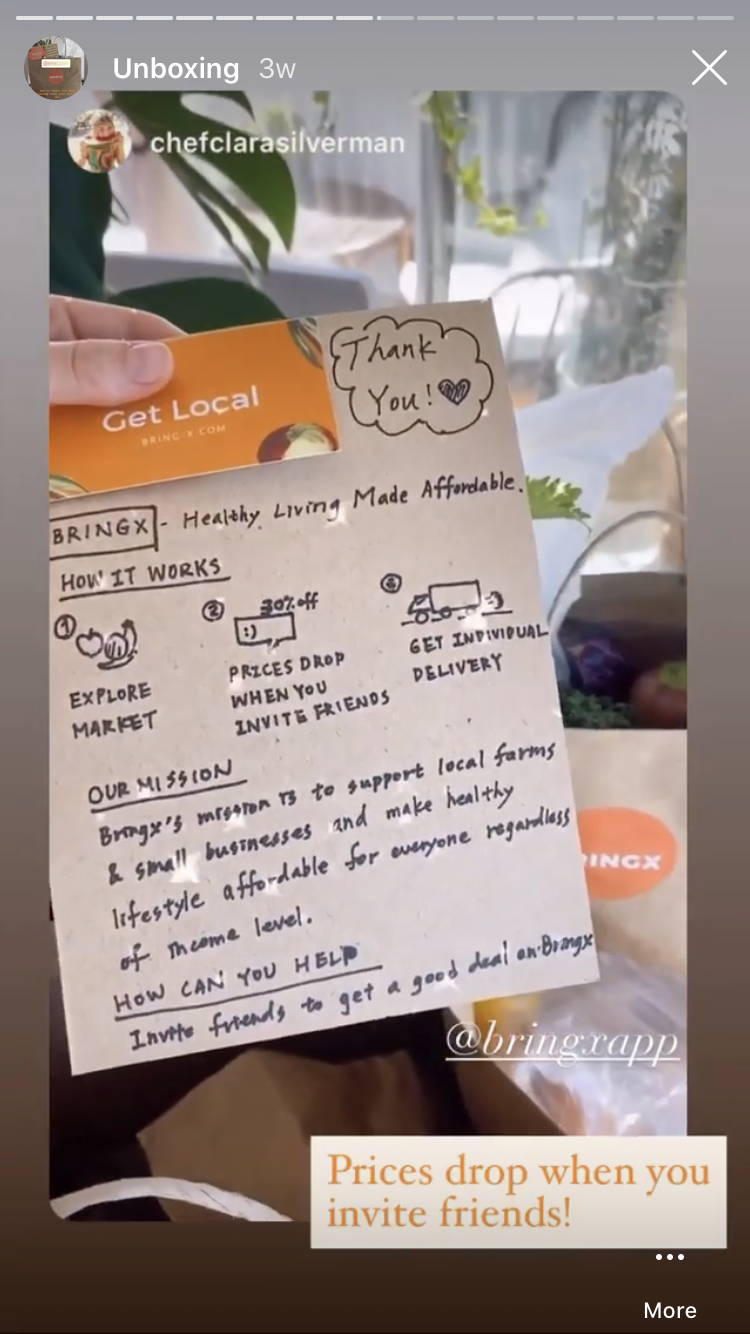 Unboxing 3w
chefclarasilverman
Thank
You!
Get Local
BRING-X.COM
BRINGX - Healthy Living Made Affordable.
HOW IT WORKS
①
EXPLORE
MARKET
②
30% off
:)
PRICES DROP
WHEN YOU
INVITE FRIENDS
③
GET INDIVIDUAL
DELIVERY
OUR MISSION
Bringx's mission is to support local farms
& small businesses and make healthy
lifestyle affordable for everyone regardless
of income level.
HOW CAN YOU HELP
Invite friends to get a good deal on Bringx
INGX
@bringxapp
Prices drop when you
invite friends!
More